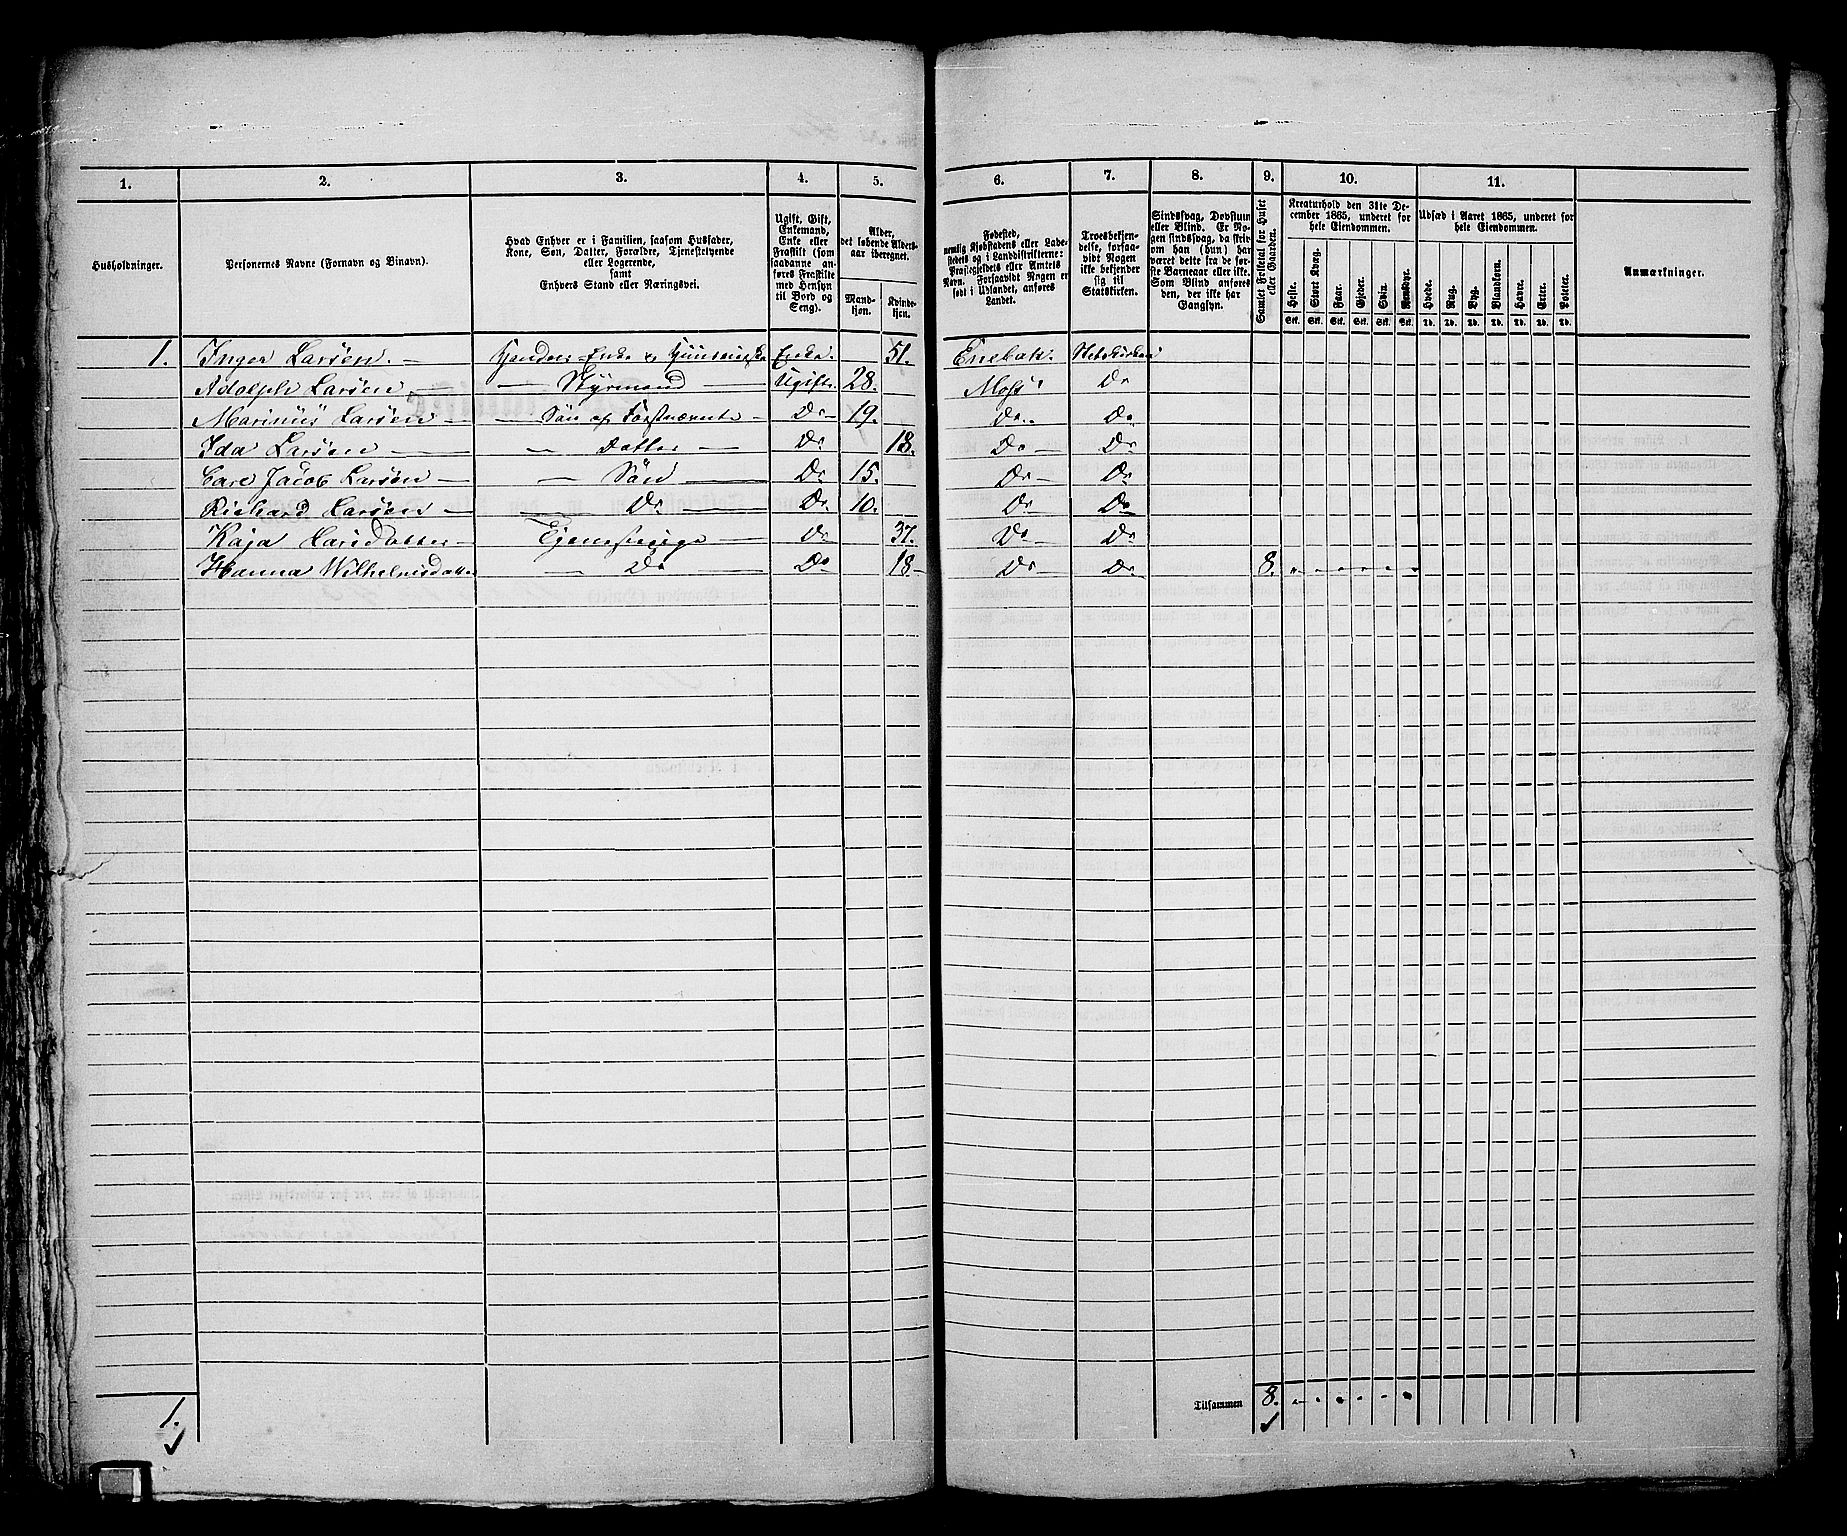 1. 2. 3. 4. 5. 6. 7. 8. 9. 10. 11.
Husholdninger.
Personernes Navne (Fornavn og Binavn).
Hvad Enhver er i Familien, saasom Husfader,
Kone, Søn, Datter, Forældre, Tjenestetyende
eller Logerende,
samt
Enhvers Stand eller Næringsvei.
Ugift, Gift,
Enkemand,
Enke eller
Fraskilt (som
saadanne an-
føres Fraskilte
med Hensyn
til Bord og
Seng).
Alder,
det løbende Alders-
aar iberegnet.
Mand-
kjøn.
Kvinde-
kjøn.
Fødested,
nemlig Kjøbstadens eller Lade-
stedets og i Landdistrikterne:
Præstegjeldets eller Amtets
Navn. Forsaavidt Nogen er
født i Udlandet, anføres
Landet.
Troesbekjen-
delse, forsaa-
vidt Nogen
ikke bekjender
sig til
Statskirken.
Sindssvag, Døvstum
eller Blind. Er No-
gen sindssvag, da skriv
om han (hun) har
været dette fra de før-
ste Barneaar eller ikke.
Som Blind anføres
den, der ikke har
Gangsyn.
Samlet Folketal for Huset
eller Gaarden.
Kreaturhold den 31te De-
cember 1865, underet for
hele Eiendommen.
Heste. Stort Kvæg. Faar. Gjeder. Svin. Rensdyr.
Stk. Stk. Stk. Stk. Stk. Stk.
Udsæd i Aaret 1865, underet for
hele Eiendommen.
Hvede. Rug. Byg. Blandkorn. Havre. Erter. Poteter.
Td. Td. Td. Td. Td. Td. Td.
Anmærkninger.
1. Inger Larsen — Enke Enke. 51. Enebak. Statskirken
Adolph Larsen — Styrmand — Ugift 28. Moss Do
Marinus Larsen — Søn af Førstnævnte — Do 19. Do Do
Ida Larsen — Datter — Do 18. Do Do
Carl Jacob Larsen — Søn — Do 15. Do Do
Richard Larsen — Do — Do 10. Do Do
Kaja Larsdatter — Do 37. Do Do
Hanna Wilhelmsdatter — Do — Do 18 Do Do 8.
Tilsammen 8.
1.